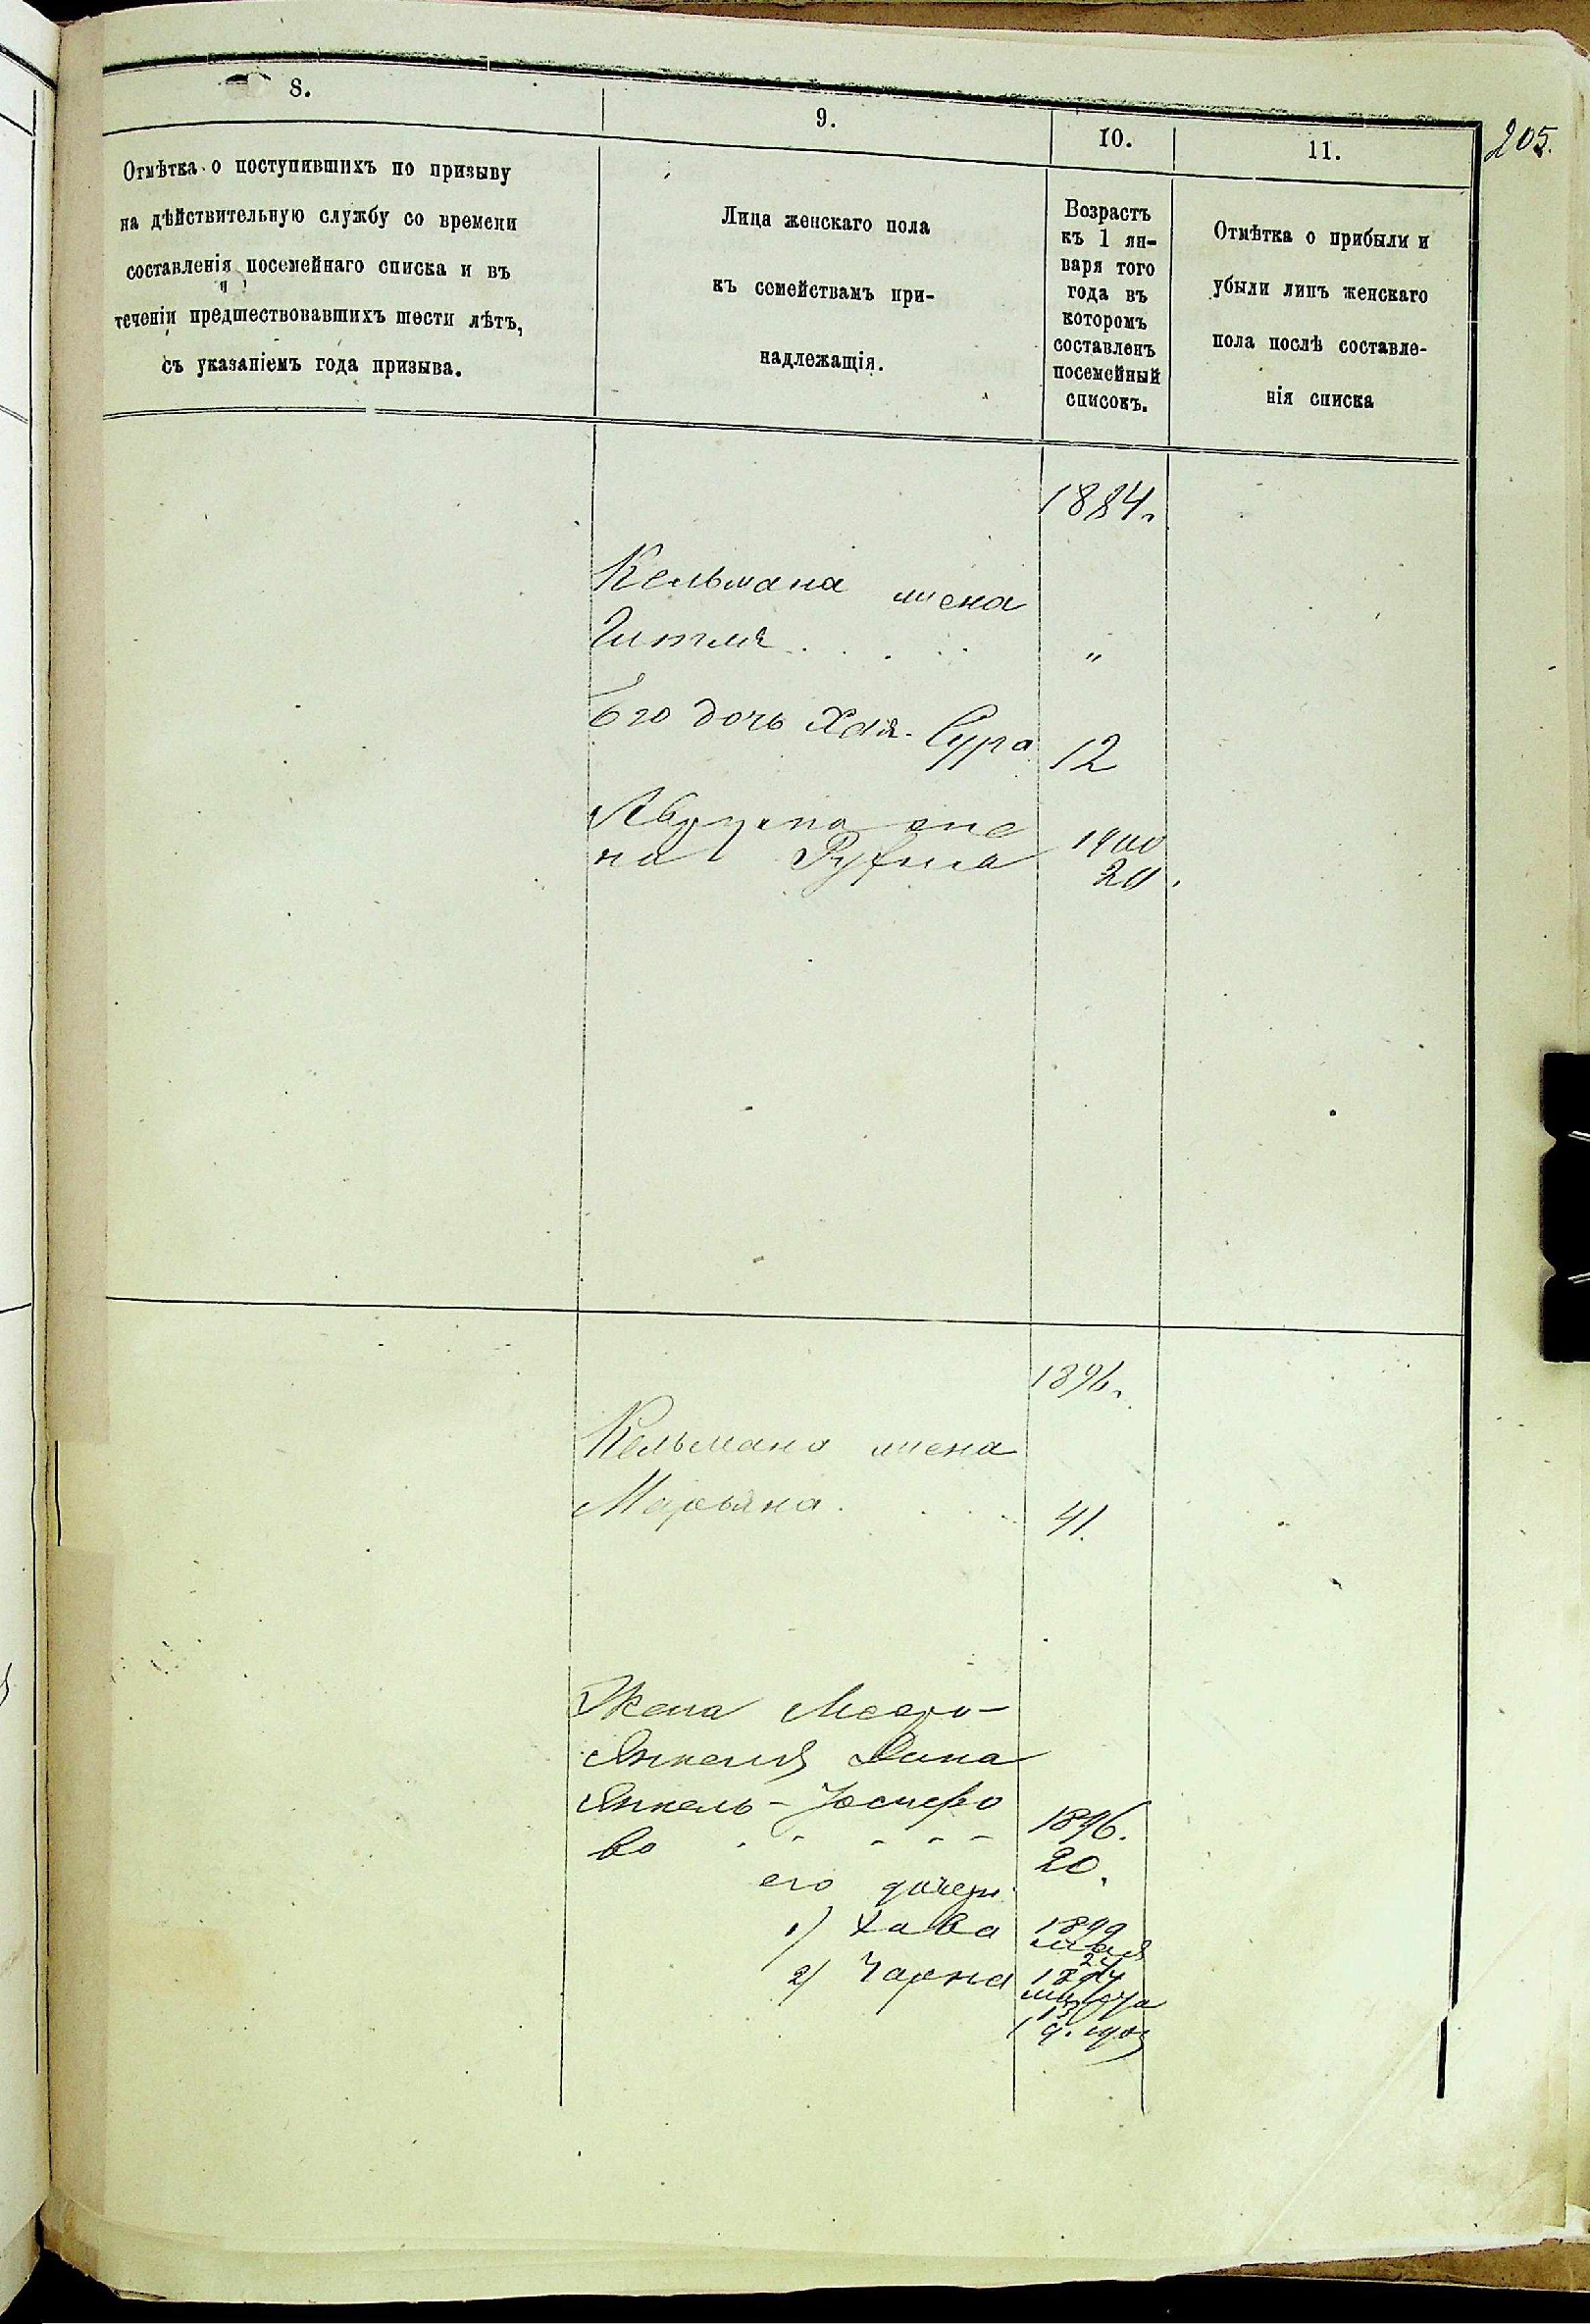 205.
8.
9.
10.
11.
Отмѣтка о поступившихъ по призыву
на дѣйствительную службу со времени
составленія посемейнаго списка и въ
теченіи предшествовавшихъ шести лѣтъ,
съ указаніемъ года призыва.
Лица женскаго пола
къ семействамъ при-
надлежащія.
Возрастъ
къ 1 ян-
варя того
года въ
которомъ
составленъ
посемейный
списокъ.
Отмѣтка о прибыли и
убыли лицъ женскаго
пола послѣ составле-
нія списка
1884.
Кельмана жена
Гитля . . . . "
Его дочь Хая-Сура 12
жe 1900
на 20.
1896.
Кельмана жена
Марьяна . . . . 41.
Жена Меера-
Янкеля Дина
Янкель-Іосифо
ва . - - - - 1896.
20.
его дочери
1) Хава 1899
2) Чарна
марта